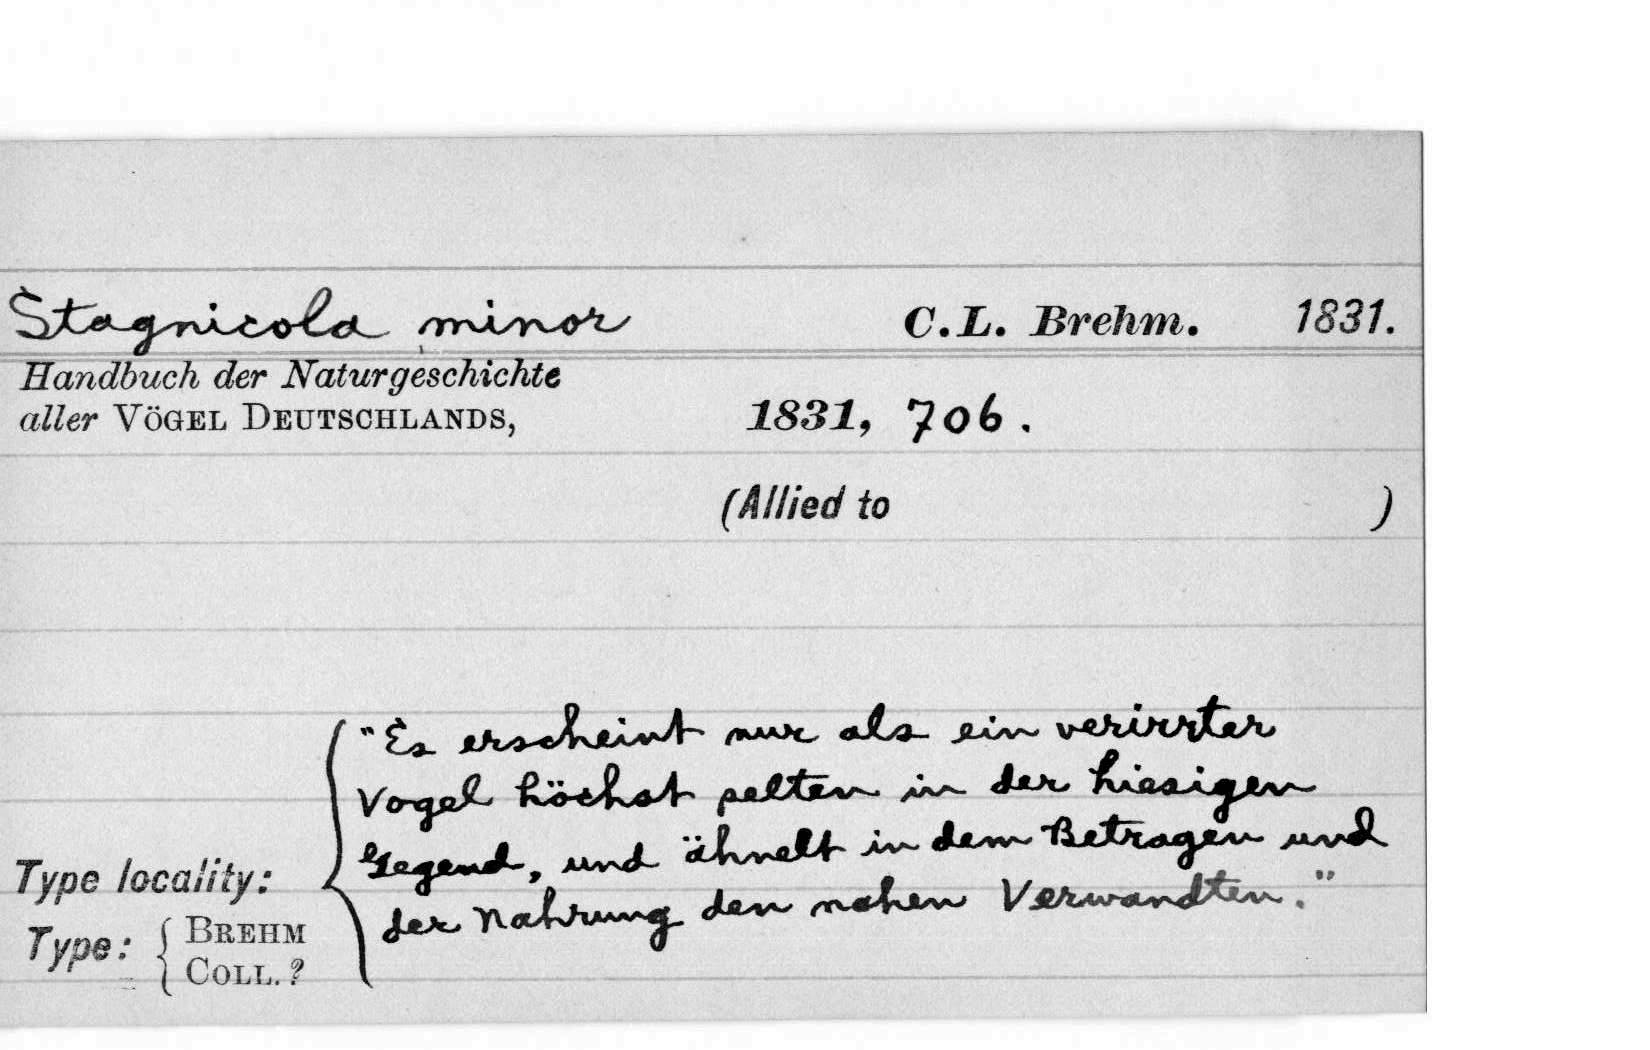 Stagnicola minor C.L. Brehm. 1831.
Handbuch der Naturgeschichte
aller VÖGEL DEUTSCHLANDS, 1831, 706.
(Allied to )
"Es erscheint nur als ein verirrter
Vogel höchst selten in der hiesigen
Gegend, und ähnelt in dem Betragen und
der Nahrung den nahen Verwandten."
Type locality:
Type: { BREHM
COLL. ?